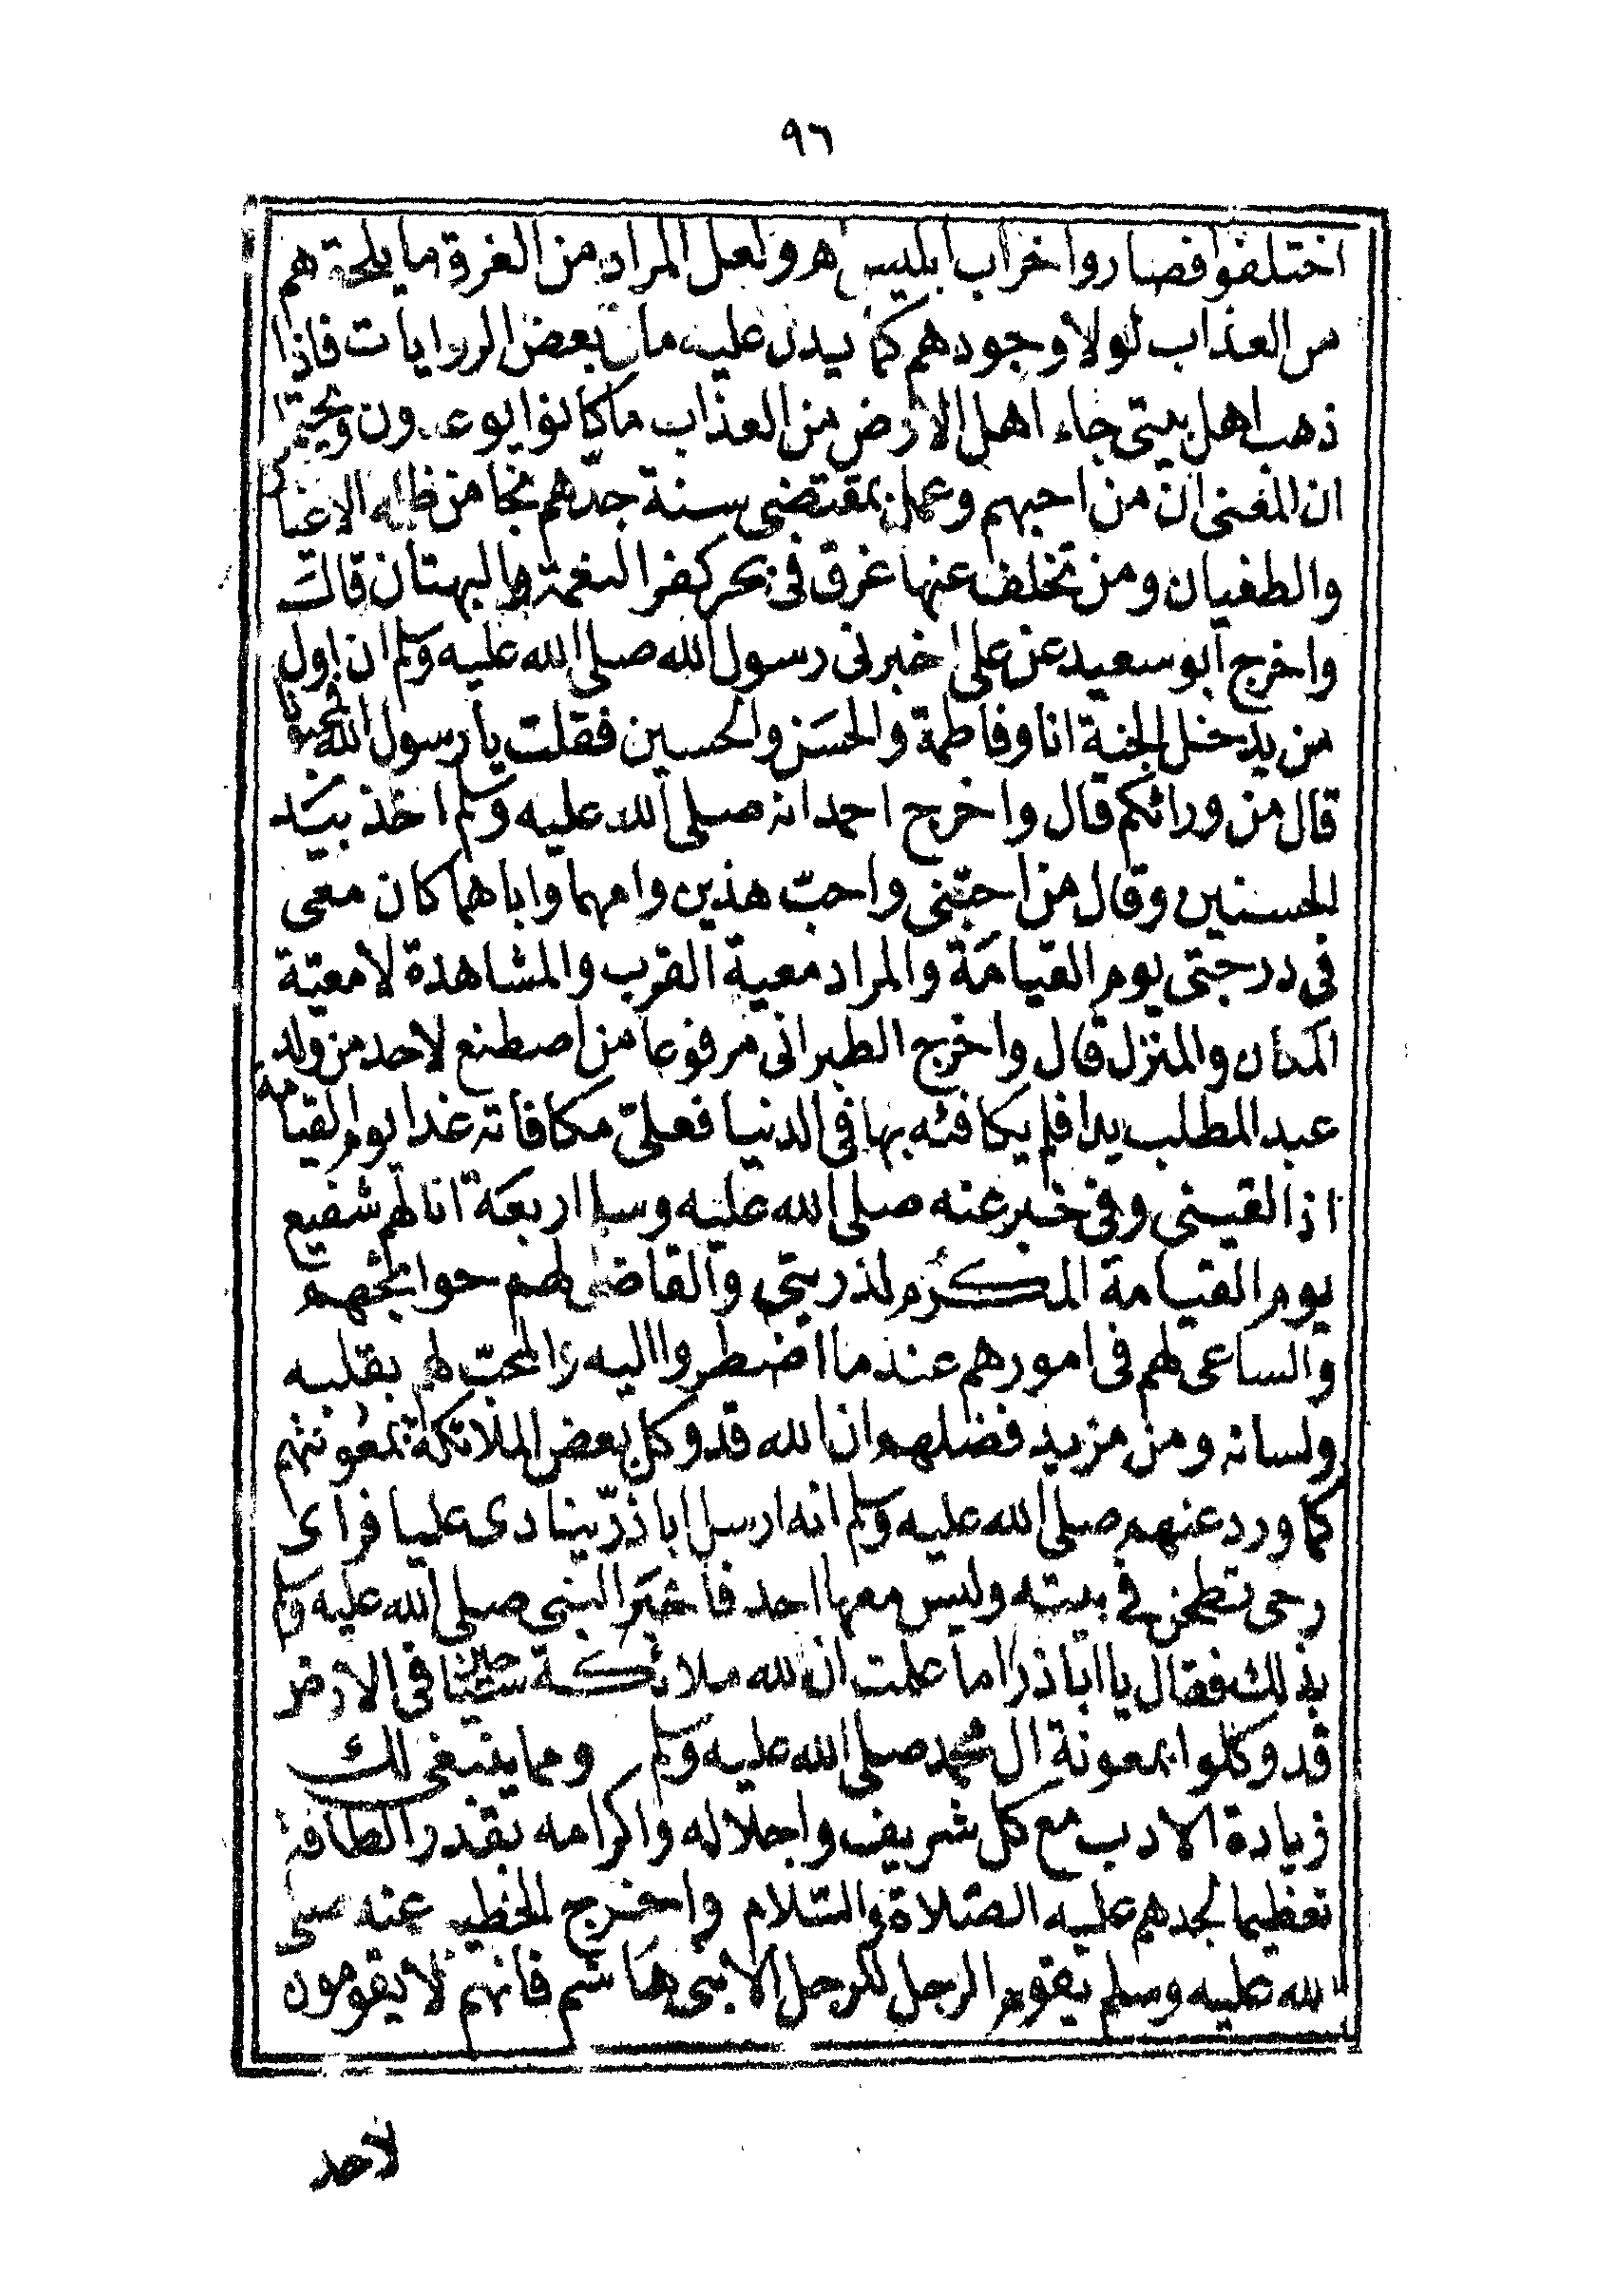 ٩٦
اختلفوا فصاروا خراب ابليس هم ولعل المراد من الغرق ما يلحقهم
من العذاب لولا وجودهم كما يدل عليه ما في بعض الروايات فاذا
ذهب اهل بيتى جاء اهل الارض من العذاب ما كانوا يوعدون ويحتمل
ان المعنى ان من احبهم وعمل بمقتضى سنة جدهم نجا من ظلمة الاغيا
والطغيان ومن تخلف عنها غرق فى بحر كفر النعمة والبهتان قال
واخرج ابو سعيد عن على اخبرنى رسول الله صلى الله عليه وسلم ان اول
من يدخل الجنة انا وفاطمة والحسن والحسين فقلت يا رسول الله فمحبونا
قال من ورائكم قال واخرج احمد انه صلى الله عليه وسلم اخذ بيد
الحسنين وقال من احبنى واحب هذين وامهما واباهما كان معى
فى درجتى يوم القيامة والمراد معية القرب والمشاهدة لا معية
المكان والمنزل قال واخرج الطبرانى مرفوعا من اصطنع لاحد من ولد
عبد المطلب يدا فلم يكافئه بها فى الدنيا فعلىّ مكافاته غدا يوم القيامة
اذا لقينى وفى خبر عنه صلى الله عليه وسلم اربعة انا لهم شفيع
يوم القيامة المكرم لذريتى والقاضى لهم حوائجهم
والساعى لهم فى امورهم عند ما اضطروا اليه والمحبّ لهم بقلبه
ولسانه ومن مزيد فضلهم ان الله قد وكل بعض الملائكة بمعونتهم
كما ورد عنهم صلى الله عليه وسلم انه ارسل ابا ذرّ ينادى عليا فراى
رحى تطحن فى بيته وليس معها احد فاخبر النبى صلى الله عليه وسلم
بذلك فقال يا ابا ذر اما علمت ان لله ملائكة سياحين فى الارض
قد وكلوا بمعونة ال محمد صلى الله عليه وسلم ومما ينبغى لك
زيادة الادب مع كل شريف واجلاله واكرامه بقدر الطاقة
تعظيما لجدهم عليه الصّلاة والسّلام واخرج الخطيب عنه صلى
الله عليه وسلم يقوم الرجل للرجل الا بنى هاشم فانهم لا يقومون
لاحد